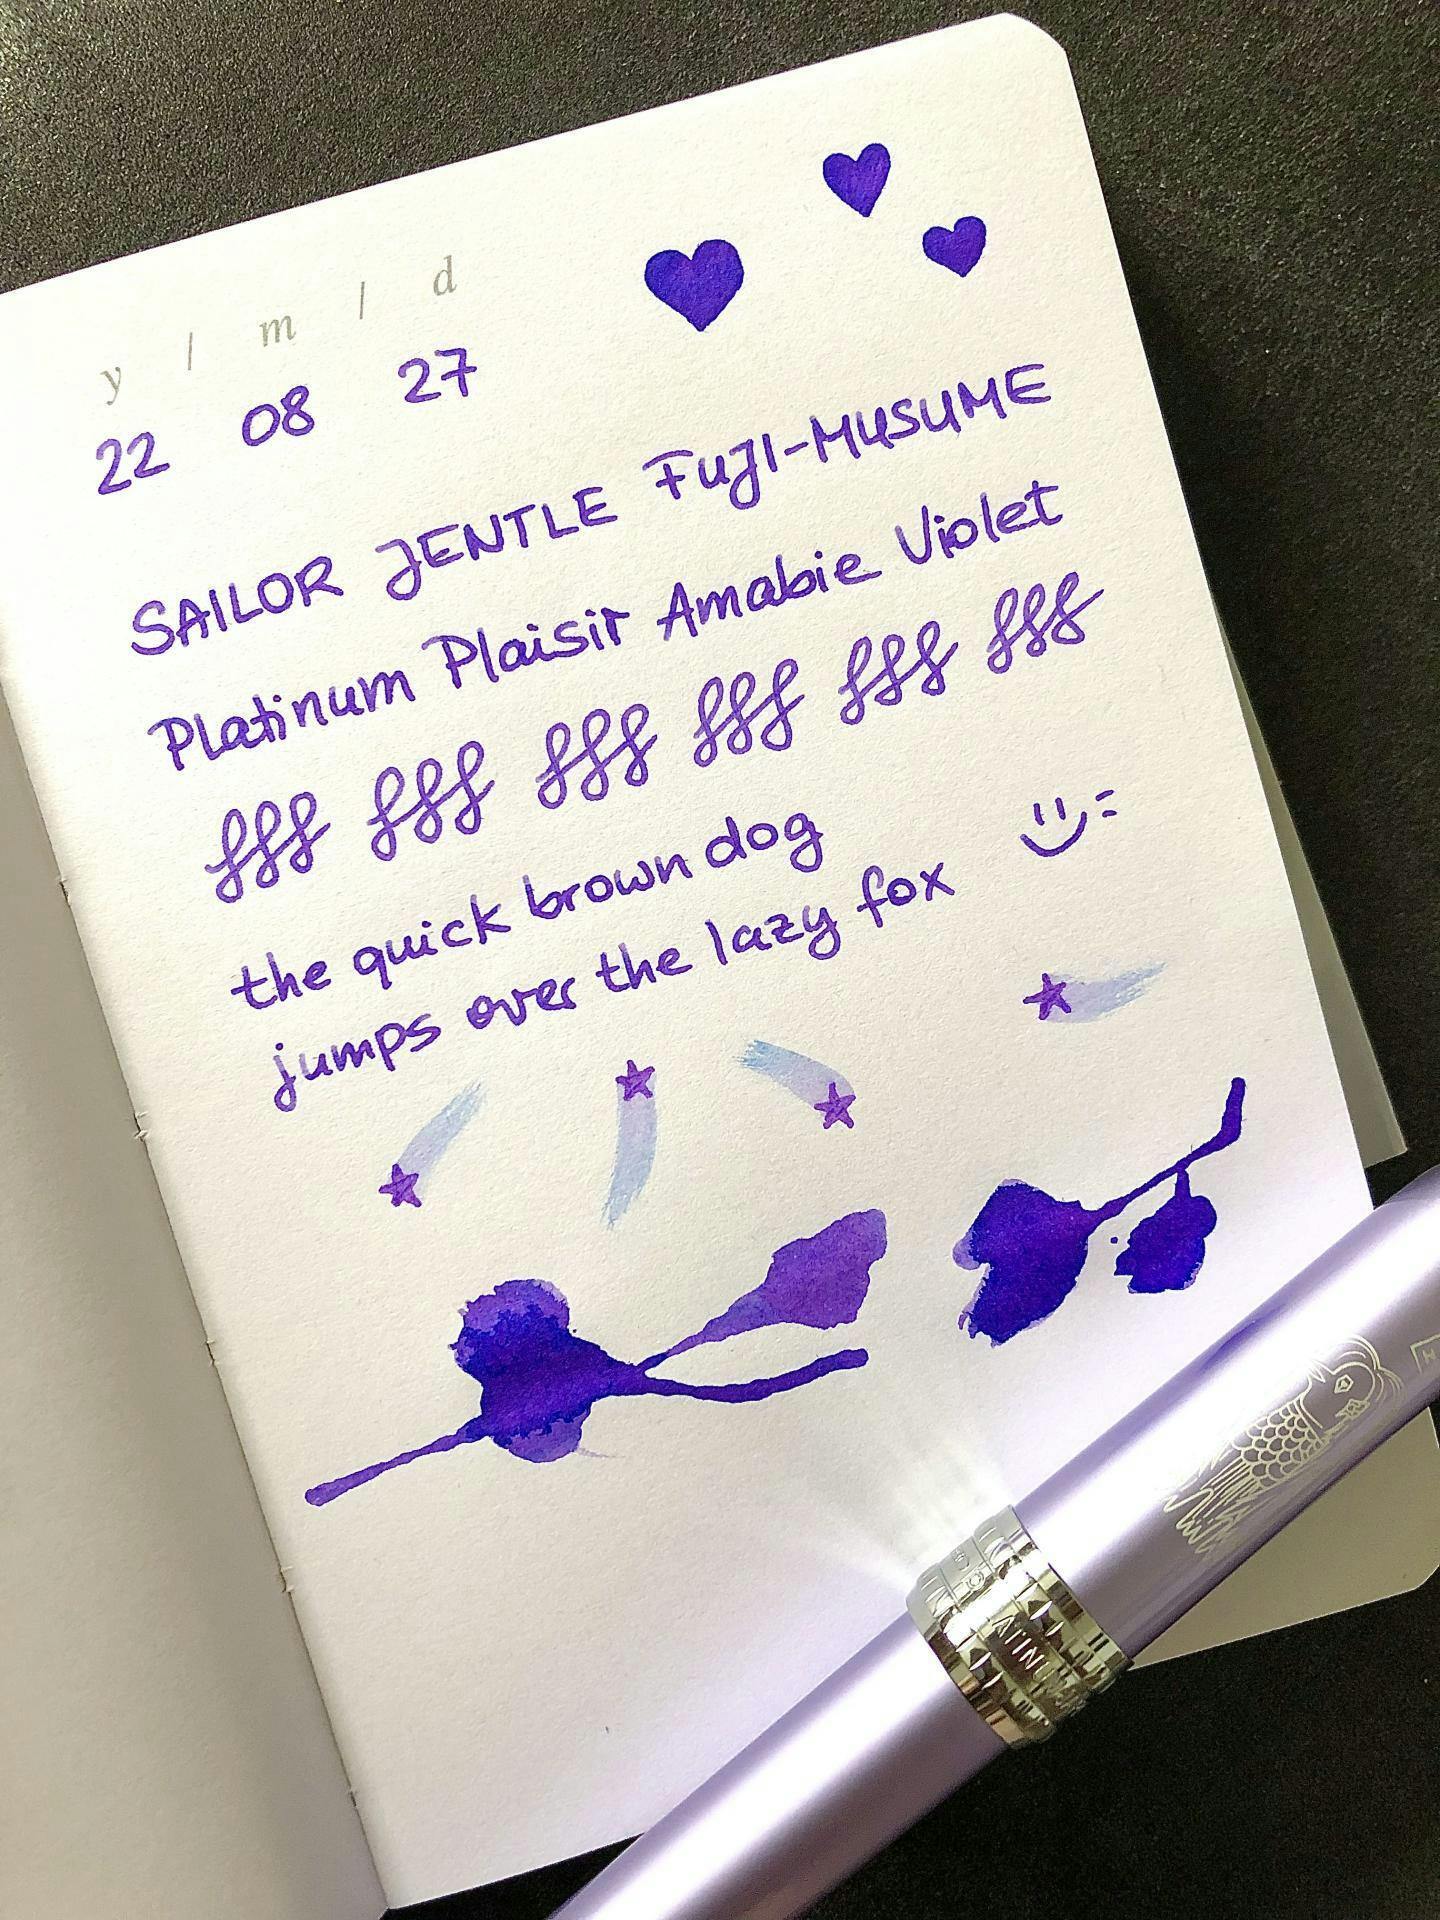 y / m / d
22 08 27
SAILOR JENTLE FUJI-MUSUME
Platinum Plaisir Amabie Violet
fff fff fff fff fff fff
the quick brown dog
jumps over the lazy fox